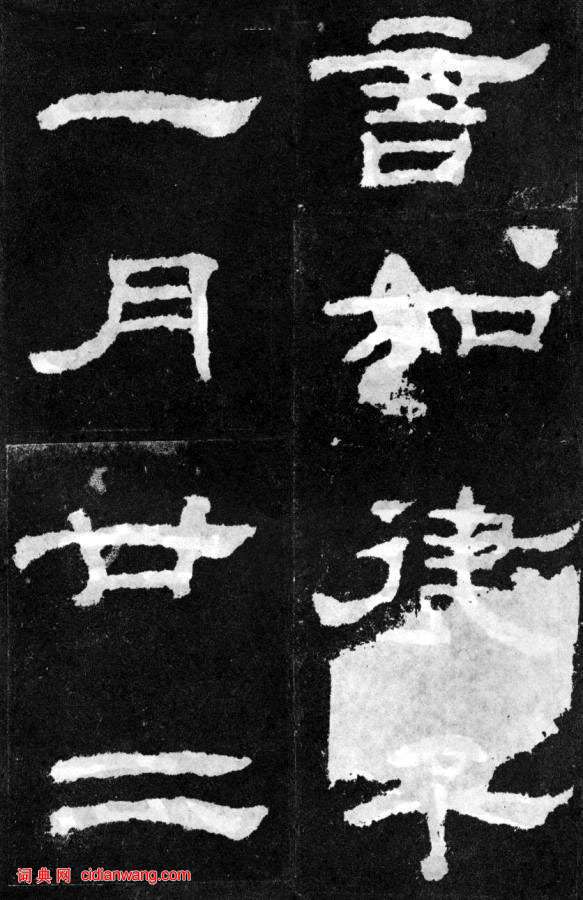 書如律令
一月廿二
词典网 cidianwang.com